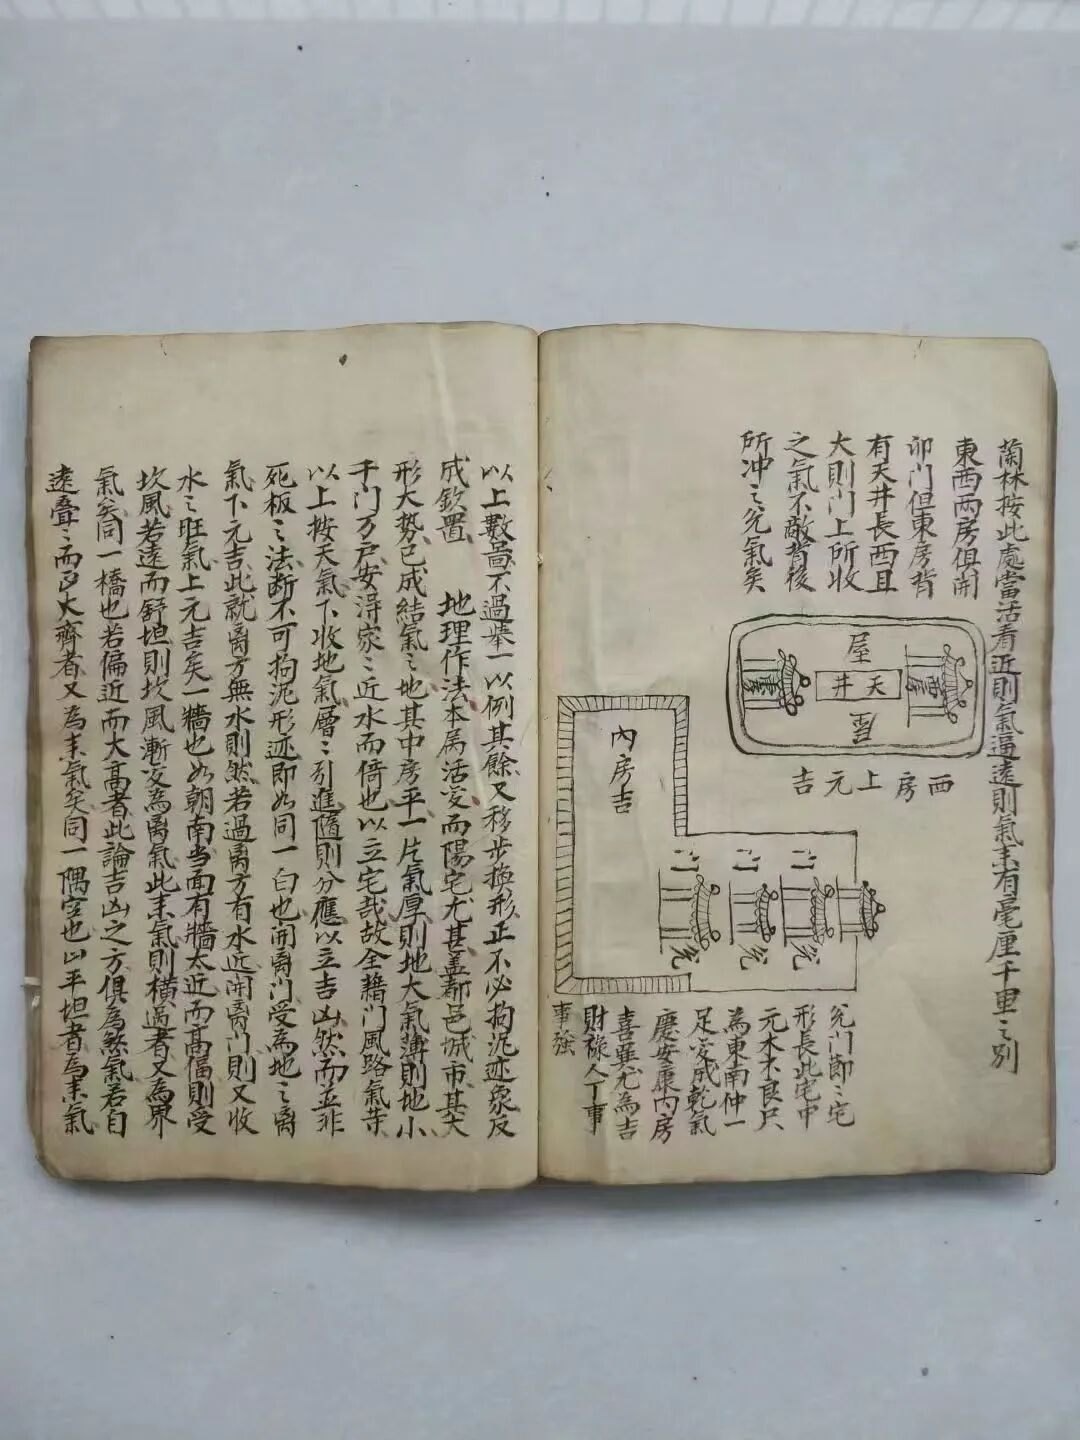 蘭林按此處當活看近則氣逼遠則氣耒有毫厘千里之別
東西兩房俱開
卯门但東房背
有天井長西且
大則门上所收
之氣不敵背後
所冲之兊氣矣
屋
天井
西房上元吉
內房吉
兊门節〻宅
形長此宅中
元木未良尺
為東南仲一
足变成乾氣
慶安康内房
喜巽尤為吉
財祿人丁事
事強
以上數啚不過舉一以例其餘又移步換形正不必拘泥迹象反
成欽置　地理作法本属活变而陽宅尤甚盖都邑城市其大
形大势已成結氣之地其中房平一片氣厚則地大氣薄則地小
千门万戸安淂家〻近水而倚也以立宅哉故全藉门風路氣
以上按天氣下收地氣層〻引進隨則分應以立吉凶然而並非
死板之法断不可拘泥形迹即如同一白也開离门受為地之离
氣下元吉此就离方無水則然若過离方有水近開离门則又收
水之旺氣上元吉矣一牆也如朝南当面有牆太近而高偪則受
坎風若遠而舒坦則坎風漸变為离氣此耒氣則横過者又為界
氣矣同一橋也若偏近而大高者此論吉凶之方俱為煞氣若自
遠疊〻而大齊者又為耒氣矣同一隅空也凶平坦者為耒氣